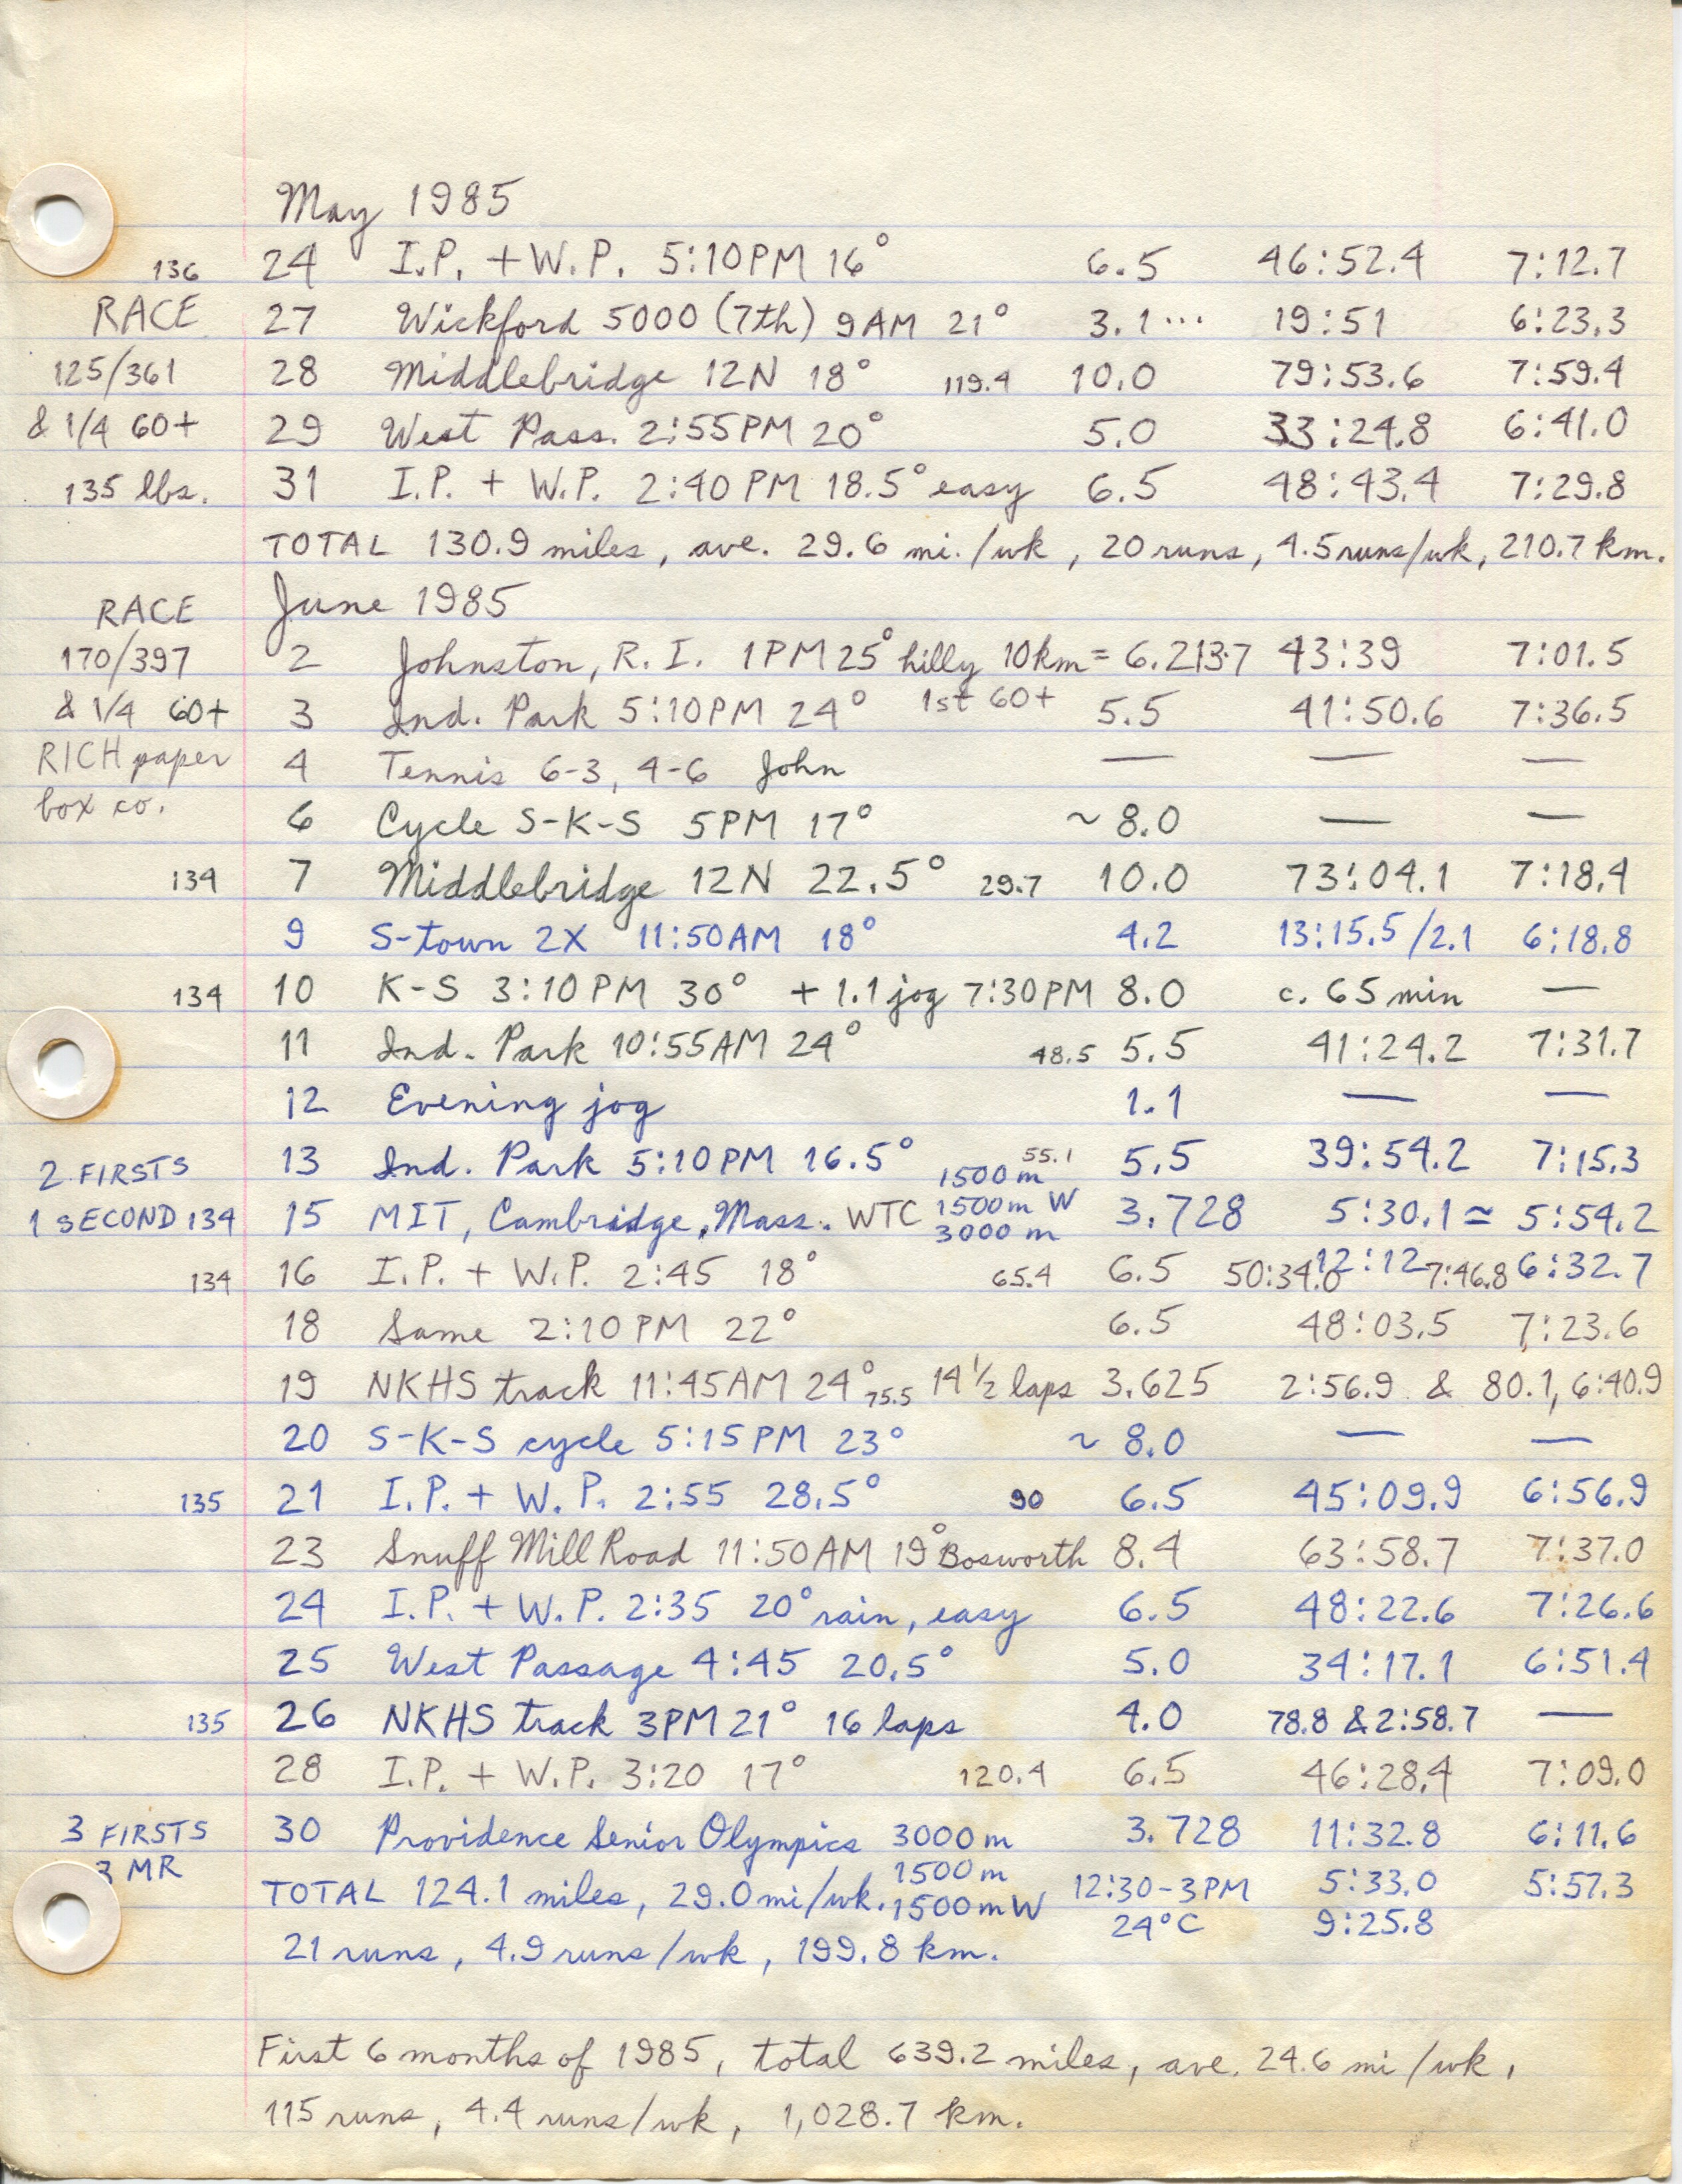 May 1985
136 24 I.P. + W.P. 5:10PM 16° 6.5 46:52.4 7:12.7
RACE 27 Wickford 5000 (7th) 9AM 21° 3.1... 19:51 6:23.3
125/361 28 Middlebridge 12N 18° 119.4 10.0 79:53.6 7:59.4
& 1/4 60+ 29 West Pass. 2:55PM 20° 5.0 33:24.8 6:41.0
135 lbs. 31 I.P. + W.P. 2:40PM 18.5° easy 6.5 48:43.4 7:29.8
TOTAL 130.9 miles, ave. 29.6 mi./wk, 20 runs, 4.5 runs/wk, 210.7 km.
RACE June 1985
170/397 2 Johnston, R.I. 1PM 25° hilly 10km = 6.2137 43:39 7:01.5
& 1/4 60+ 3 Ind. Park 5:10PM 24° 1st 60+ 5.5 41:50.6 7:36.5
RICH paper 4 Tennis 6-3, 4-6 John — — —
box co. 6 Cycle S-K-S 5PM 17° ~8.0 — —
134 7 Middlebridge 12N 22.5° 29.7 10.0 73:04.1 7:18.4
9 S-town 2X 11:50AM 18° 4.2 13:15.5/2.1 6:18.8
134 10 K-S 3:10PM 30° + 1.1 jog 7:30PM 8.0 c. 65 min —
11 Ind. Park 10:55AM 24° 48.5 5.5 41:24.2 7:31.7
12 Evening jog 1.1 — —
2 FIRSTS 13 Ind. Park 5:10PM 16.5° 55.1 5.5 39:54.2 7:15.3
1500 m
1 SECOND 134 15 MIT, Cambridge, Mass. WTC 1500m W 3.728 5:30.1 ≃ 5:54.2
3000 m 12:12 6:32.7
134 16 I.P. + W.P. 2:45 18° 65.4 6.5 50:34.0 7:46.8
18 Same 2:10PM 22° 6.5 48:03.5 7:23.6
19 NKHS track 11:45AM 24° 75.5 14 1/2 laps 3.625 2:56.9 & 80.1, 6:40.9
20 S-K-S cycle 5:15PM 23° ~8.0 — —
135 21 I.P. + W.P. 2:55 28.5° 90 6.5 45:09.9 6:56.9
23 Snuff Mill Road 11:50AM 19° Bosworth 8.4 63:58.7 7:37.0
24 I.P. + W.P. 2:35 20° rain, easy 6.5 48:22.6 7:26.6
25 West Passage 4:45 20.5° 5.0 34:17.1 6:51.4
135 26 NKHS track 3PM 21° 16 laps 4.0 78.8 & 2:58.7 —
28 I.P. + W.P. 3:20 17° 120.4 6.5 46:28.4 7:09.0
3 FIRSTS 30 Providence Senior Olympics 3000 m 3.728 11:32.8 6:11.6
3 MR 1500 m 12:30-3PM 5:33.0 5:57.3
TOTAL 124.1 miles, 29.0 mi/wk. 1500 m W 24°C 9:25.8
21 runs, 4.9 runs/wk, 199.8 km.
First 6 months of 1985, total 639.2 miles, ave. 24.6 mi/wk,
115 runs, 4.4 runs/wk, 1,028.7 km.